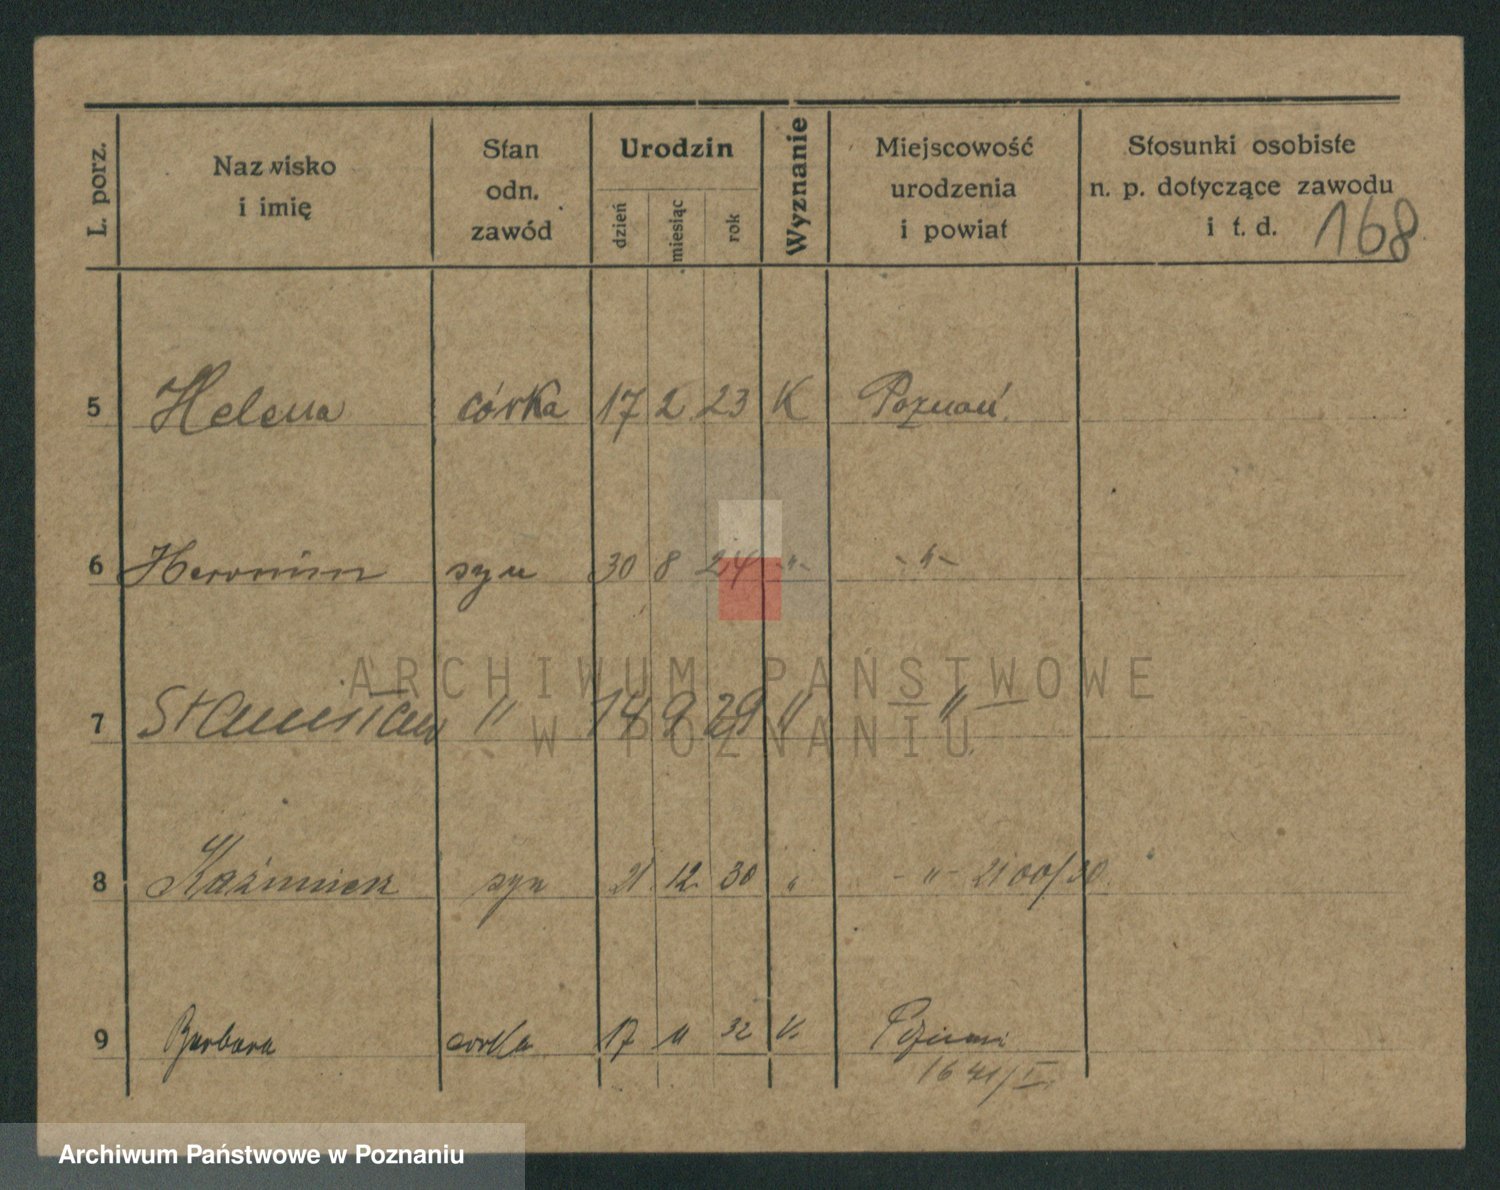 L. porz.
Nazwisko
i imię
Stan
odn.
zawód
Urodzin
dzień
miesiąc
rok
Wyznanie
Miejscowość
urodzenia
i powiat
Stosunki osobiste
n. p. dotyczące zawodu
i t. d.
168
5 Helena córka 17 2 23 K Poznań
6 Heronim syn 30 8 24 -"- -"-
7 Stanisław " 14 9 29 " — " —
8 Kaźmierz syn 21 12 30 " -"- 2100/30
9 Barbara corka 17 11 32 K. Poznań
1641/I
ARCHIWUM PAŃSTWOWE
W POZNANIU
Archiwum Państwowe w Poznaniu